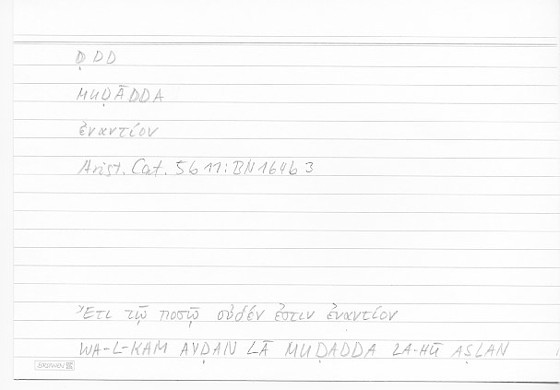 ḌDD
MUḌĀDDA
ἐναντίον
Arist. Cat. 5b11: BN164b3
Ἔτι τῷ ποσῷ οὐδέν ἐστιν ἐναντίον
WA-L-KAM AYḌAN LĀ MUḌADDA LA-HŪ AṢLAN